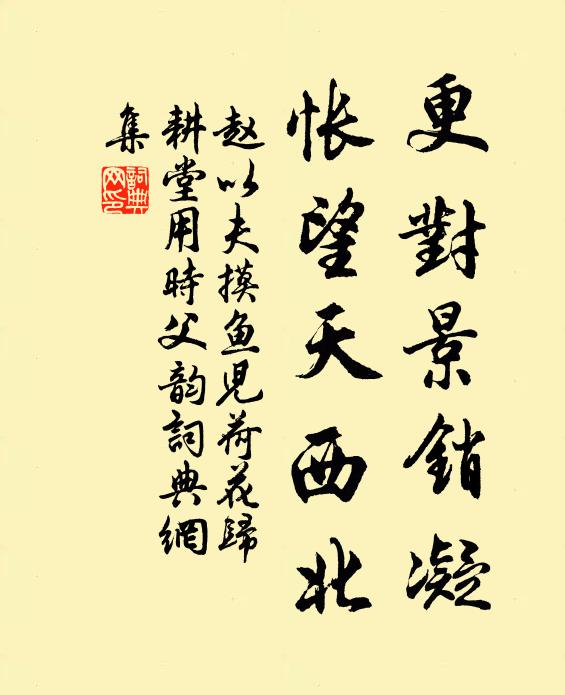 更對景銷凝
悵望天西北
赵以夫摸鱼児荷花歸
耕堂用時父韵詞典網
集
詞典網印